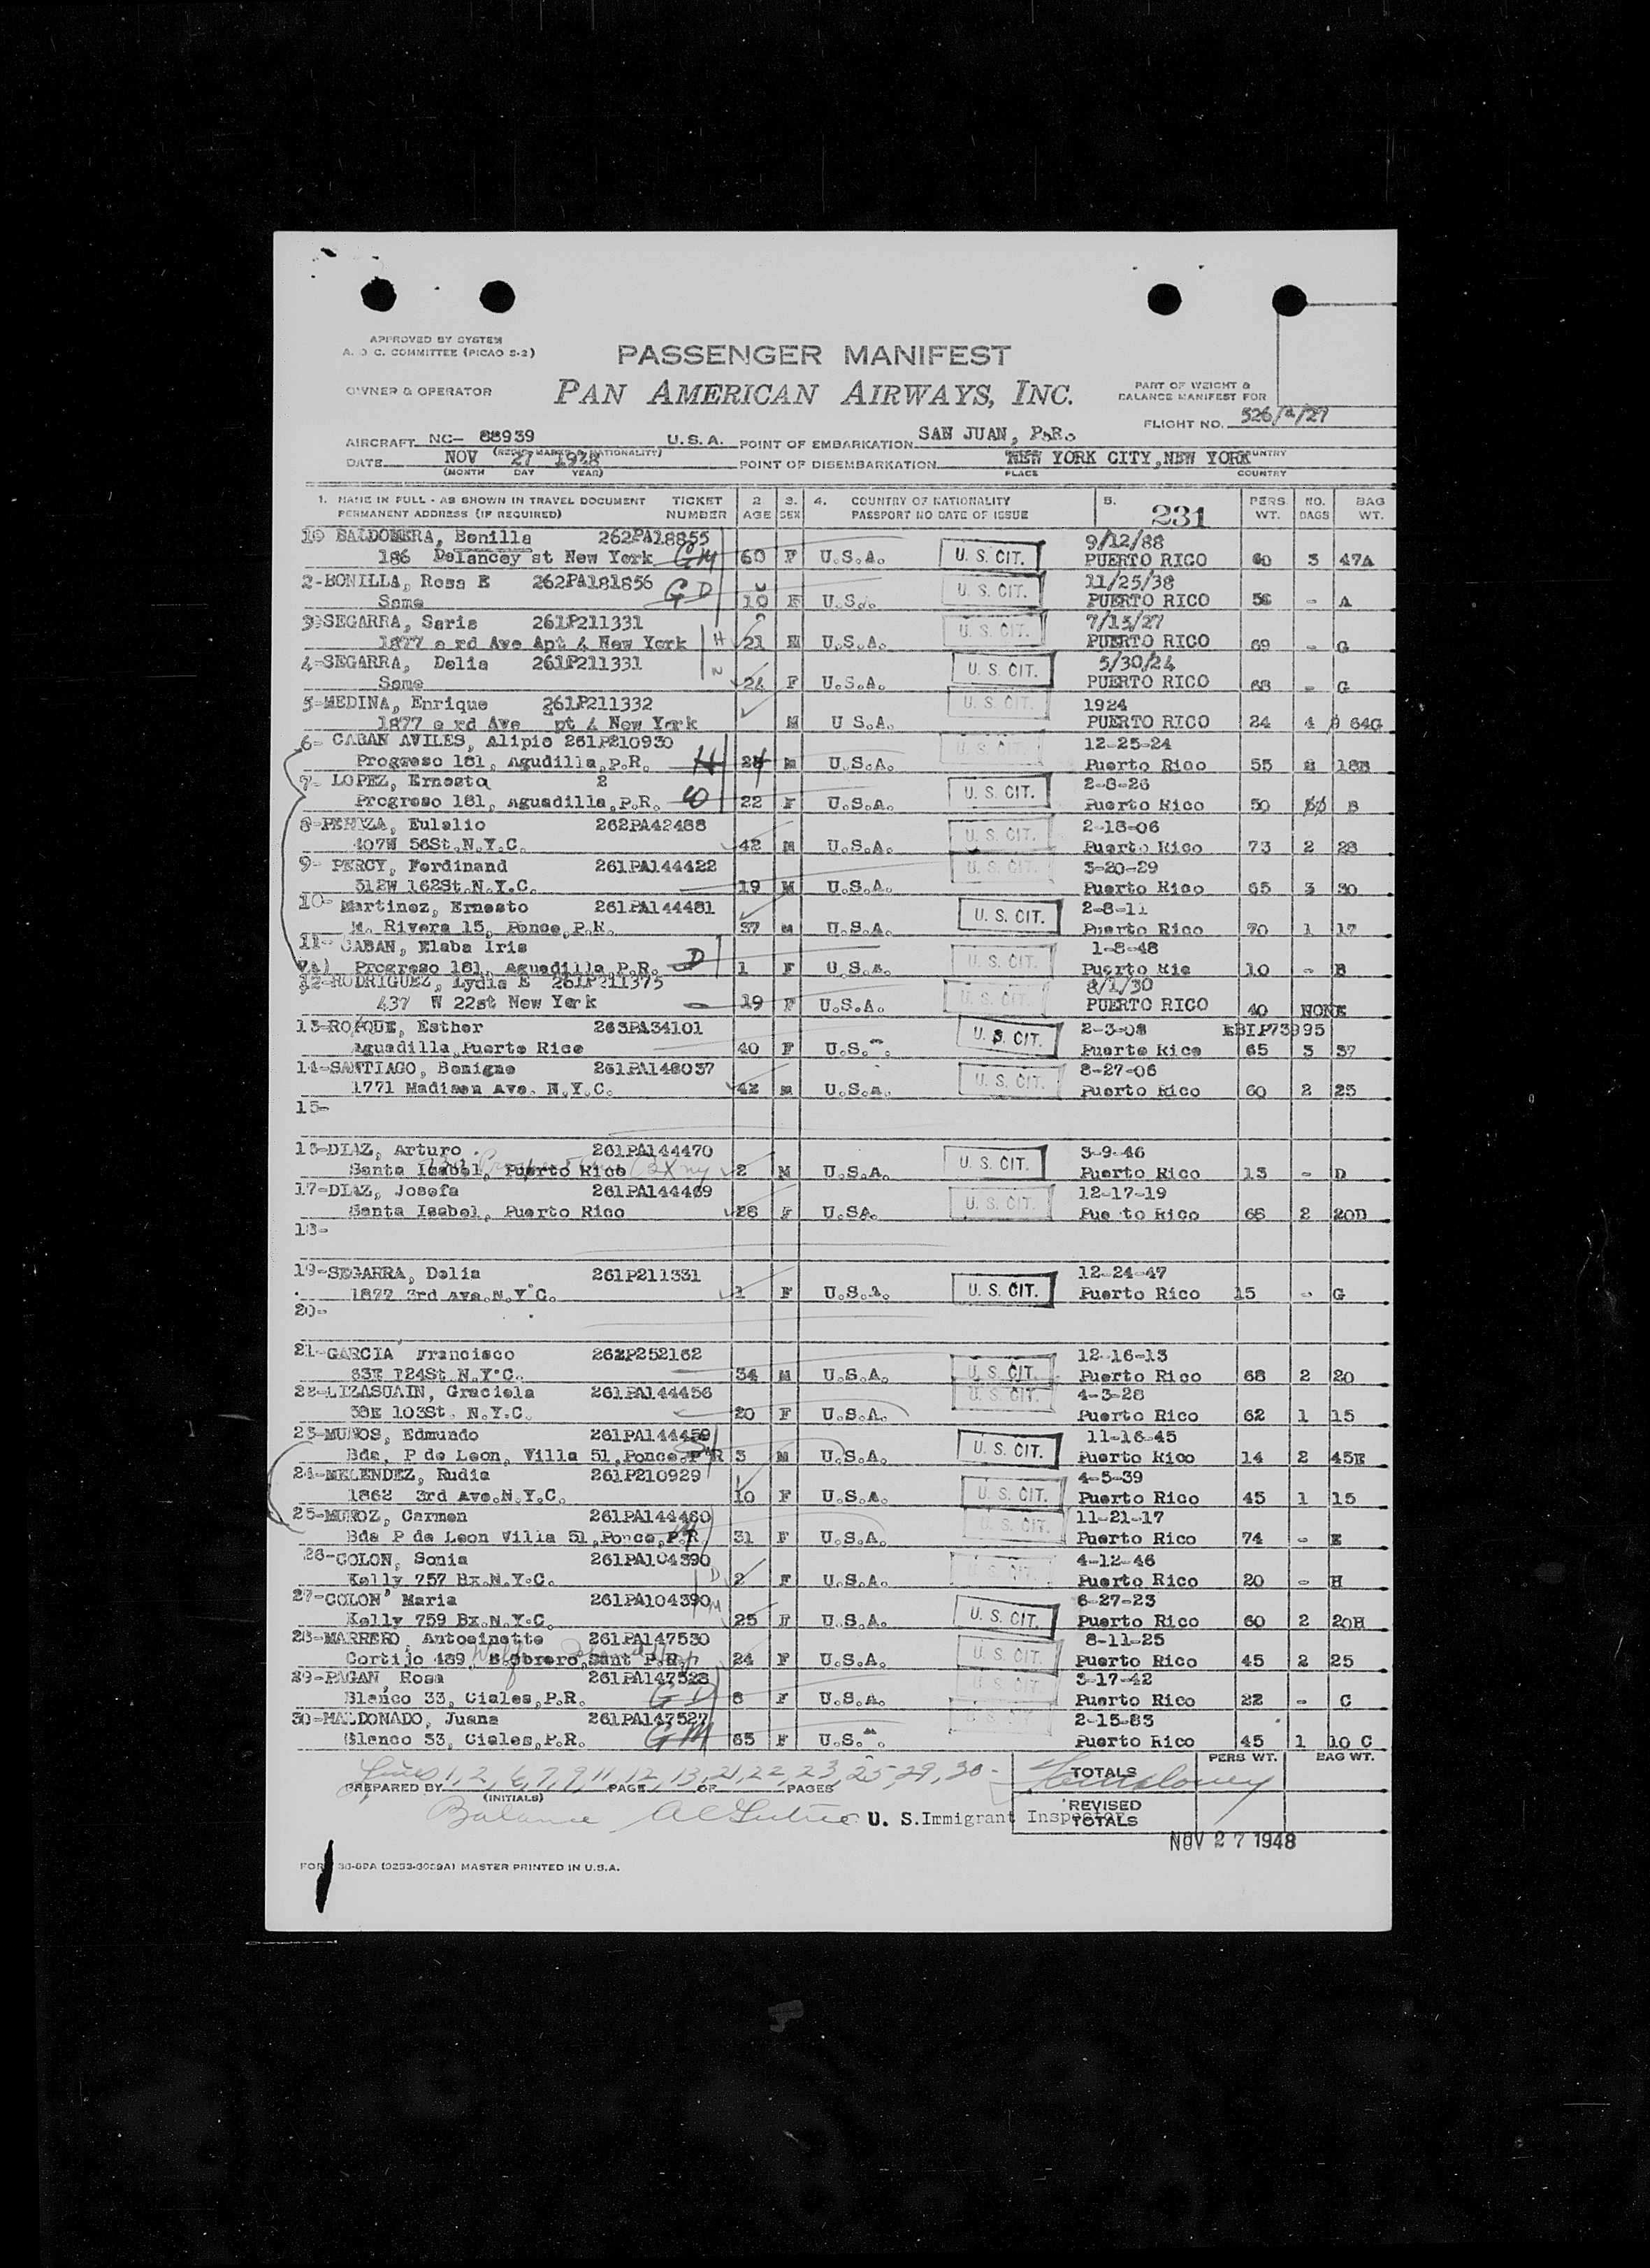 APPROVED BY SYSTEM
A. O C. COMMITTEE (PICAO S-2)
PASSENGER MANIFEST
OWNER & OPERATOR
PAN AMERICAN AIRWAYS, INC.
PART OF WEIGHT &
BALANCE MANIFEST FOR
FLIGHT NO. 526/a/27
AIRCRAFT NC- 88939 U.S.A. POINT OF EMBARKATION SAN JUAN, P.R.
DATE NOV 27 1948 POINT OF DISEMBARKATION NEW YORK CITY, NEW YORK
(MONTH DAY YEAR) PLACE COUNTRY
1. NAME IN FULL - AS SHOWN IN TRAVEL DOCUMENT TICKET 2. 3. 4. COUNTRY OF NATIONALITY 5. PERS NO. BAG
PERMANENT ADDRESS (IF REQUIRED) NUMBER AGE SEX PASSPORT NO DATE OF ISSUE 231 WT. BAGS WT.
BALDOMERA, Bonilla 262PA18855 9/12/88
186 Delancey st New York GM 60 F U.S.A. U. S. CIT. PUERTO RICO 60 3 47A
2-BONILLA, Rosa E 262PA181856 11/25/38
Same GD 10 F U.S.. U. S. CIT. PUERTO RICO 56 - A
3-SEGARRA, Saris 261P211331 7/15/27
1877 e rd Ave Apt 4 New York H 21 M U.S.A. U. S. CIT. PUERTO RICO 69 - G
4-SEGARRA, Delia 261P211331 5/30/24
Same 24 F U.S.A. U. S. CIT. PUERTO RICO 68 - G
5-MEDINA, Enrique 261P211332 1924
1877 e rd Ave pt 4 New York M U S.A. U. S. CIT. PUERTO RICO 24 4 64G
6- CABAN AVILES, Alipio 261P210930 12-25-24
Progreso 181, Agudilla,P.R. H M U.S.A. U. S. CIT. Puerto Rico 55 18B
7- LOPEZ, Ernesta 2 2-8-26
Progreso 181, Aguadilla,P.R. 22 F U.S.A. U. S. CIT. Puerto Rico 50 B
8-PERIZA, Eulalio 262PA42488 2-18-06
407W 56St.N.Y.C. 42 M U.S.A. U. S. CIT. Puerto Rico 73 2 28
9- PERCY, Ferdinand 261PA144422 3-20-29
512W 162St.N.Y.C. 19 M U.S.A. U. S. CIT. Puerto Rico 65 3 30
10- Martinez, Ernesto 261PA144481 2-8-11
M. Rivera 15, Ponce,P.R. 37 M U.S.A. U. S. CIT. Puerto Rico 70 1 17
11- CABAN, Elaba Iris 1-8-48
Progreso 181, Aguadilla,P.R. D 1 F U.S.A. U. S. CIT. Puerto Ric 10 - B
12-RODRIGUEZ, Lydia E 261P211375 8/1/30
437 W 22st New York 19 F U.S.A. U. S. CIT. PUERTO RICO 40 NONE
13-ROQUE, Esther 263PA34101 2-3-08 EBIP73995
Aguadilla,Puerto Rico 40 F U.S. U. S. CIT. Puerto Rico 65 3 37
14-SANTIAGO, Benigno 261PA148037 8-27-06
1771 Madison Ave. N.Y.C. 42 M U.S.A. U. S. CIT. Puerto Rico 60 2 25
15-
16-DIAZ, Arturo 261PA144470 3-9-46
Santa Isabel, Puerto Rico 2 M U.S.A. U. S. CIT. Puerto Rico 13 - D
17-DIAZ, Josefa 261PA144469 12-17-19
Santa Isabel, Puerto Rico 28 F U.SA. U. S. CIT. Pue to Rico 68 2 20D
18-
19-SEGARRA, Delia 261P211331 12-24-47
1877 3rd Ave.N.Y C. 1 F U.S.A. U. S. CIT. Puerto Rico 15 - G
20-
21-GARCIA Francisco 262P252162 12-16-13
63E 124St N.Y.C. 34 M U.S.A. U. S. CIT. Puerto Rico 68 2 20
22-LIZASUAIN, Graciela 261PA144456 4-3-28
38E 103St. N.Y.C. 20 F U.S.A. U. S. CIT. Puerto Rico 62 1 15
23-MUNOS, Edmundo 261PA144459 11-16-45
Bda. P de Leon, Villa 51,Ponce P R 3 M U.S.A. U. S. CIT. Puerto Rico 14 2 45E
24-MELENDEZ, Rudia 261P210929 4-5-39
1862 3rd Ave.N.Y.C. 10 F U.S.A. U. S. CIT. Puerto Rico 45 1 15
25-MUNOZ, Carmen 261PA144460 11-21-17
Bda P de Leon Villa 51,Ponce,P.R 31 F U.S.A. U. S. CIT. Puerto Rico 74 - E
26-COLON, Sonia 261PA104390 4-12-46
Kelly 757 Bx.N.Y.C. D 2 F U.S.A. Puerto Rico 20 - H
27-COLON Maria 261PA104390 6-27-23
Kelly 759 Bx.N.Y.C. M 25 F U.S.A. U. S. CIT. Puerto Rico 60 2 20H
28-MARRERO, Antoeinette 261PA147530 8-11-25
Cortijo 439, B.Obrero,Sant P.R. 24 F U.S.A. U. S. CIT. Puerto Rico 45 2 25
29-PAGAN, Rosa 261PA147528 3-17-42
Blanco 33, Ciales,P.R. GD 6 F U.S.A. U. S. CIT. Puerto Rico 22 - C
30-MALDONADO, Juana 261PA147527 2-15-83
Blanco 33, Ciales,P.R. GM 65 F U.S. Puerto Rico 45 1 10 C
Lines 1, 2, 6, 7, 9, 11, 12, 13, 21, 22, 23, 25, 29, 30-
PREPARED BY PAGE OF PAGES TOTALS PERS WT. BAG WT.
(INITIALS)
Balance U. S.Immigrant Inspector REVISED TOTALS
NOV 27 1948
FOR 36-69A (0253-6059A) MASTER PRINTED IN U.S.A.